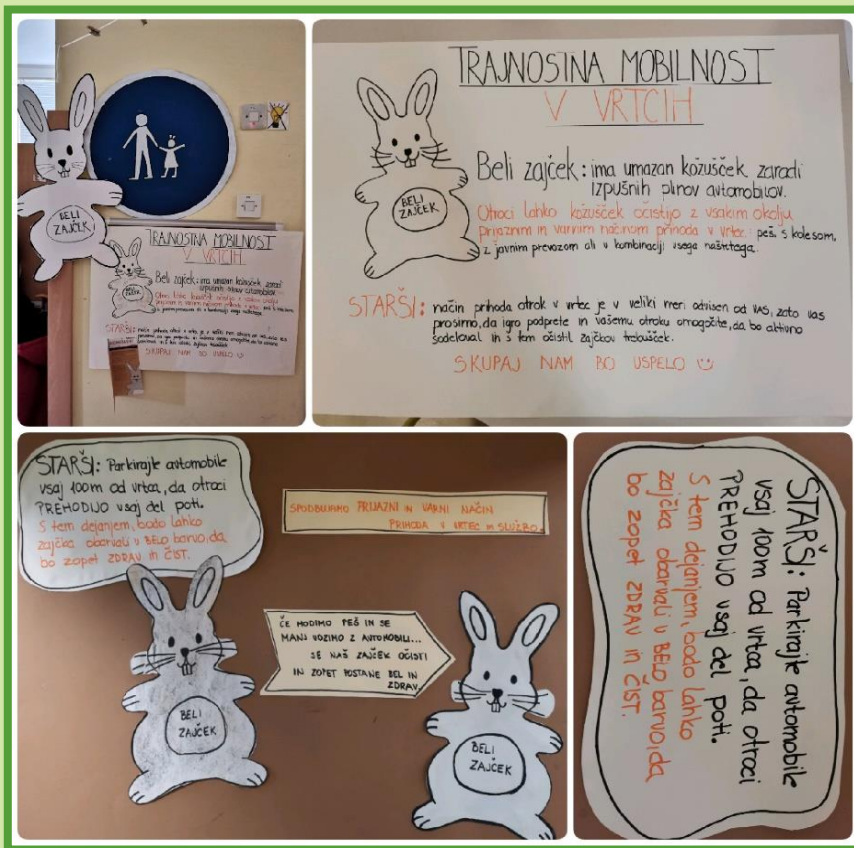 BELI
ZAJČEK
TRAJNOSTNA MOBILNOST
V VRTCIH
BELI
ZAJČEK
Beli zajček: ima umazan kožušček zaradi
izpušnih plinov avtomobilov.
Otroci lahko kožušček očistijo z vsakim okolju
prijaznim in varnim načinom prihoda v vrtec: peš, s kolesom,
z javnim prevozom ali v kombinaciji vsega naštetega.
STARŠI: način prihoda otrok v vrtec je v veliki meri odvisen od VAS, zato vas
prosimo, da igro podprete in vašemu otroku omogočite, da bo aktivno
sodeloval in s tem očistil zajčkov trebušček.
SKUPAJ NAM BO USPELO
TRAJNOSTNA MOBILNOST
V VRTCIH
BELI
ZAJČEK
Beli zajček: ima umazan kožušček zaradi
izpušnih plinov avtomobilov.
Otroci lahko kožušček očistijo z vsakim okolju
prijaznim in varnim načinom prihoda v vrtec: peš, s kolesom,
z javnim prevozom ali v kombinaciji vsega naštetega.
STARŠI: način prihoda otrok v vrtec je v veliki meri odvisen od VAS, zato vas
prosimo, da igro podprete in vašemu otroku omogočite, da bo aktivno
sodeloval in s tem očistil zajčkov trebušček.
SKUPAJ NAM BO USPELO
STARŠI: Parkirajte avtomobile
vsaj 100m od vrtca, da otroci
PREHODIJO vsaj del poti.
S tem dejanjem, bodo lahko
zajčka obarvali v BELO barvo, da
bo zopet ZDRAV in ČIST.
SPODBUJAMO PRIJAZNI IN VARNI NAČIN
PRIHODA V VRTEC in SLUŽBO.
ČE HODIMO PEŠ IN SE
MANJ VOZIMO Z AVTOMOBILI...
SE NAŠ ZAJČEK OČISTI
IN ZOPET POSTANE BEL IN
ZDRAV
BELI
ZAJČEK
BELI
ZAJČEK
STARŠI: Parkirajte avtomobile
vsaj 100m od vrtca, da otroci
PREHODIJO vsaj del poti.
S tem dejanjem, bodo lahko
zajčka obarvali v BELO barvo, da
bo zopet ZDRAV in ČIST.